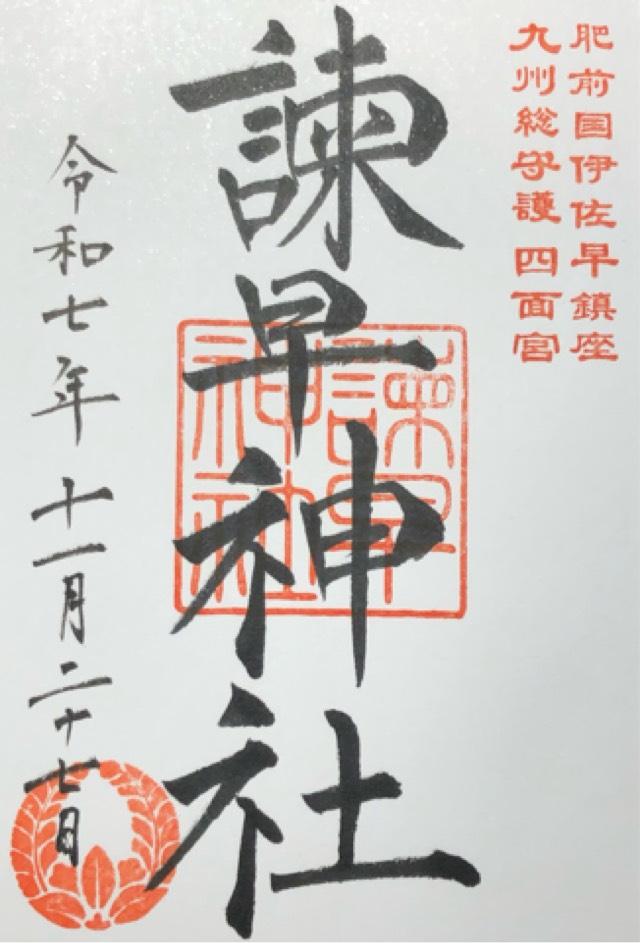 肥前国伊佐早鎮座
九州総守護 四面宮
諫早神社
諫早神社
令和七年 十一月二十七日